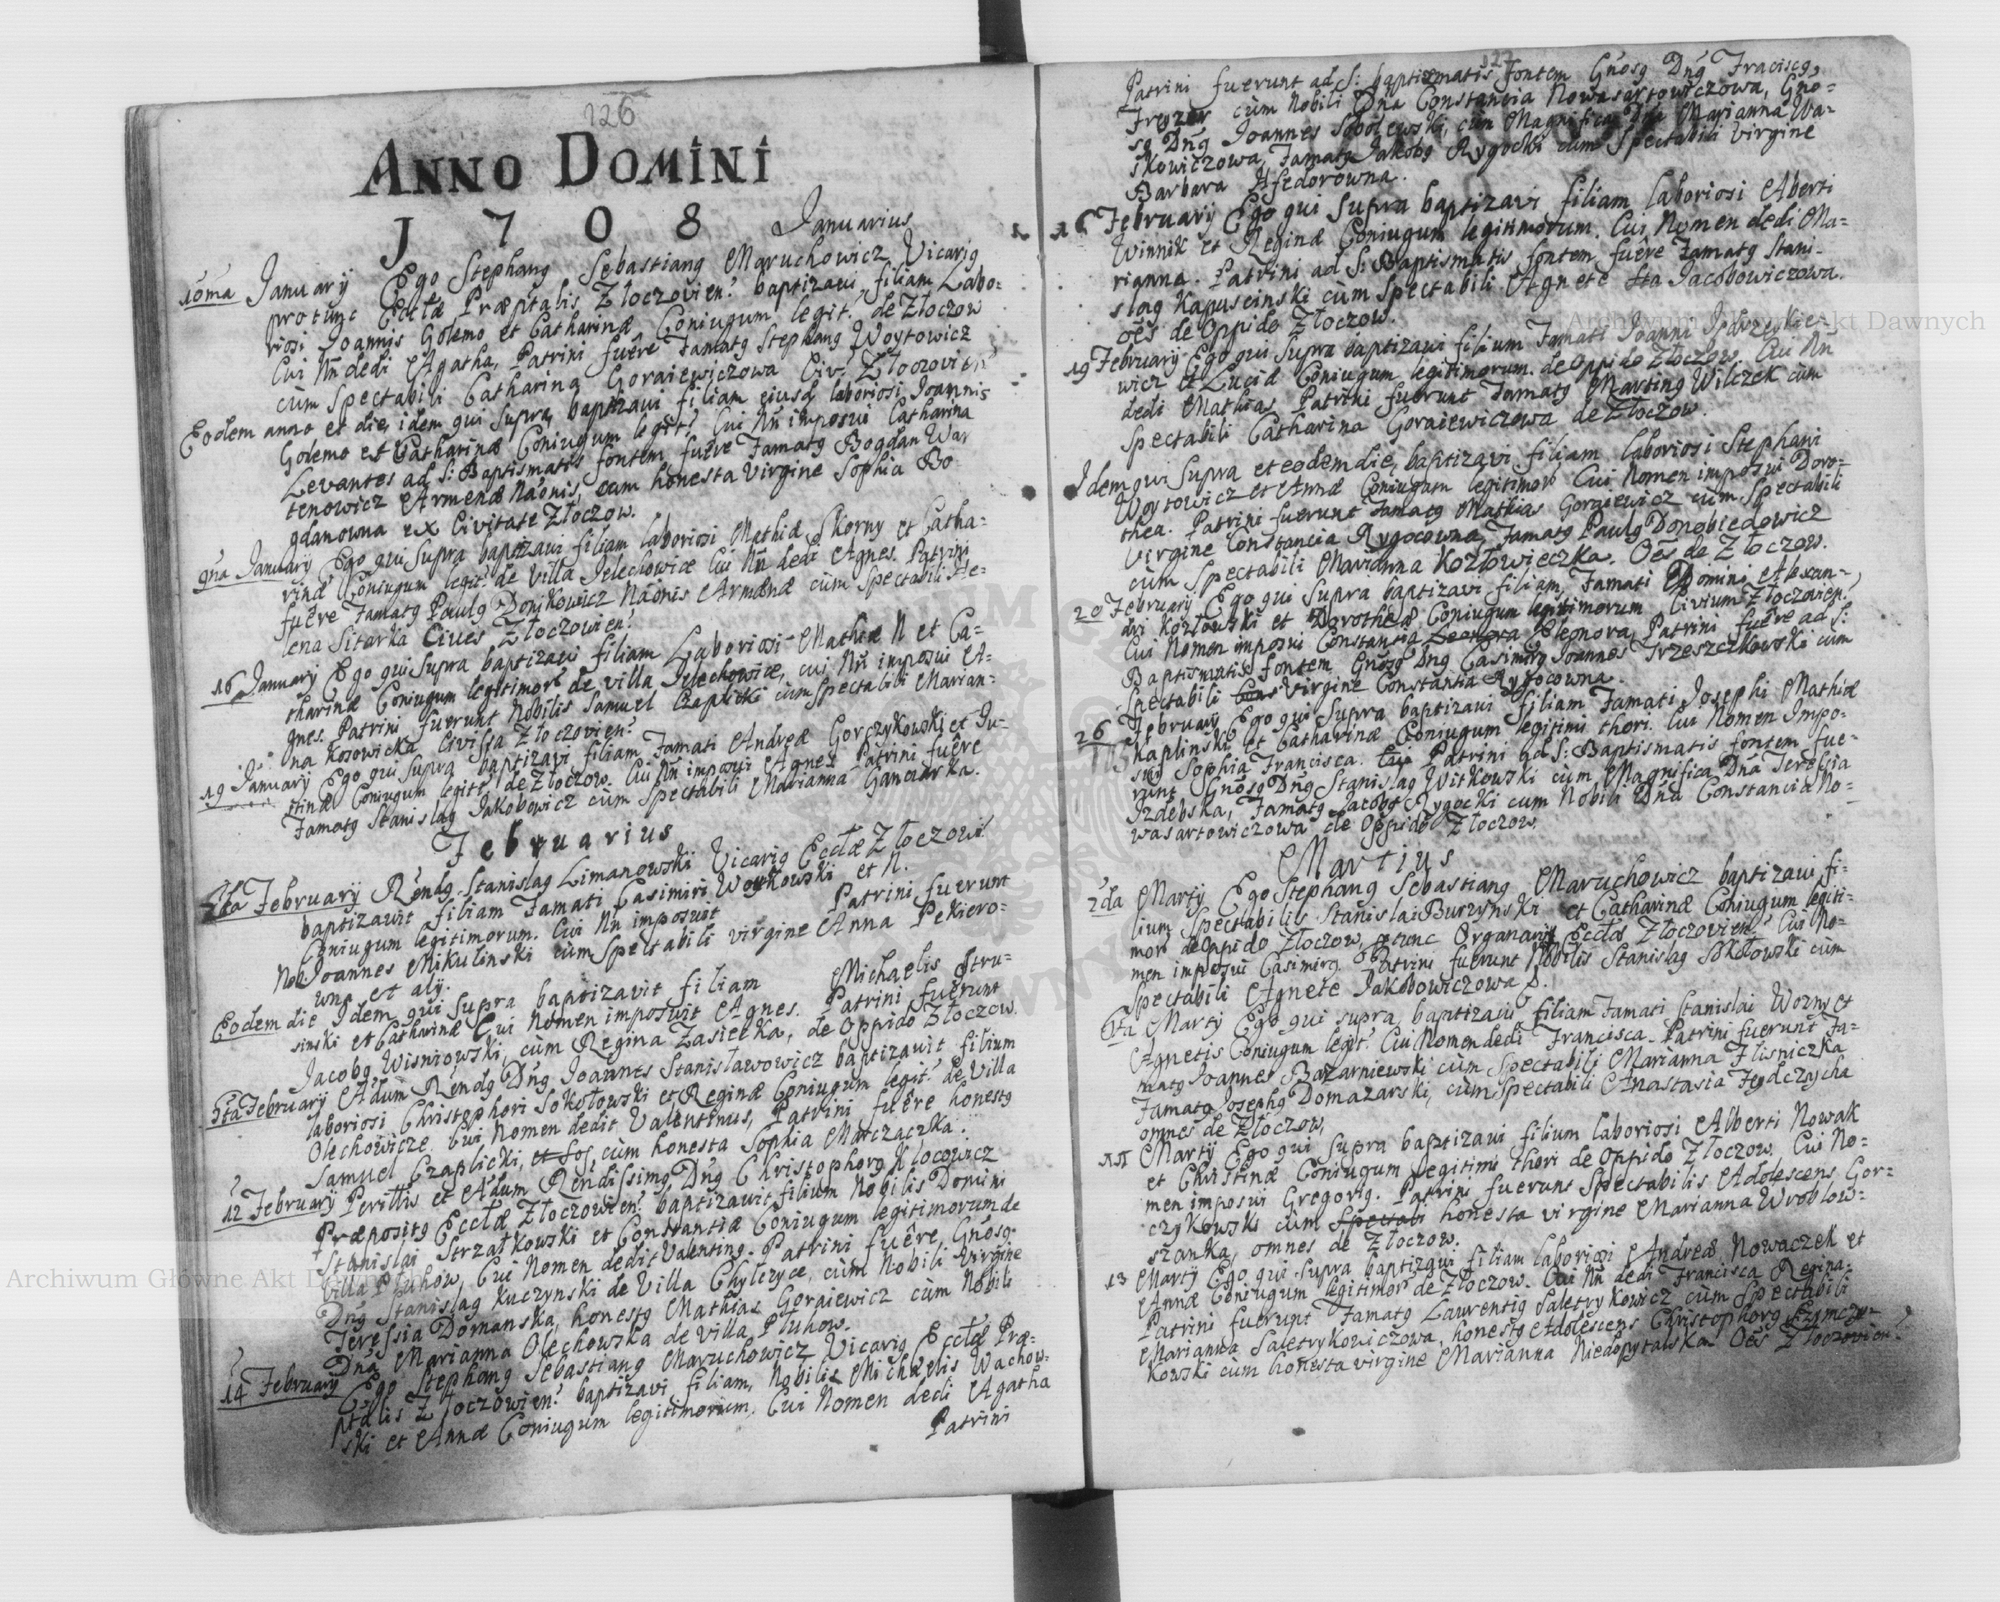 126
ANNO DOMINI
1708 Januarius
1oma January Ego Stephang Sebastiang Maruchowicz Vicarig
protunc Ecclæ Præptalis Złoczovien: baptizavi filiam Labo-
riosi Joannis Golemo et Catharinæ Coniugum legit: de Złoczow
Cui Nn dedi Agatha, Patrini fuêre Famatg Stephang Woytowicz
cùm Spectabili Catharina Goraiewiczowa Civ: Złoczovien
Eodem anno et die, idem qui supra, baptizavi filiam eiusd laboriosi Joannis
Golemo et Catharinæ Coniugum legit: Cui Nn imposui Catharina
Levantes ad S: Baptismatis fontem fuêre Famatg Bogdan War
tenowicz Armenæ Naõnis, cum honesta virgine Sophia Bo
gdanowna ex Civitate Złoczow.
9na January Ego qui supra baptizavi filiam laboriosi Mathiæ Skorny et Catha-
rinæ Coniugum legit: de Villa Jelechowice Cui Nn dedi Agnes. Patrini
fuêre Famatg Paulg Donikowicz Naõnis Armenæ cùm Spectabili He-
lena Sitarka Cives Złoczowien:
16 January Ego qui supra baptizavi filiam Laboriosi Mathiæ N et Ca-
tharinæ Coniugum legitimorũ de villa Jelechowice, cui Nn imposui A-
gnes. Patrini fuerunt Nobilis Samuel Czaplicki cùm Spectabili Marian-
na Kosowicka Civissa Złoczovien:
19 January Ego qui supra baptizavi filiam Famati Andreæ Gorczykowski et Ju-
stinæ Coniugum legit: de Złoczow. Cui Nn imposui Agnes Patrini fuêre
Famatg Stanislag Jakobowicz cùm Spectabili Marianna Gancarka.
Februarius
2da February Rẽndg. Stanislag Limanowski Vicarig Ecclæ Złoczovi
baptizavit filiam Famati Casimiri Woykowski et N.
Coniugum legitimorum. Cui Nn imposuit Patrini fuerunt
Nob Joannes Mikulinski cùm Spectabili virgine Anna Pekiero-
wna et aly.
Eodem die Idem qui supra baptizavit filiam Michaelis Stru-
sinski et Catharinæ Cui Nomen imposuit Agnes. Patrini fuerunt
Jacobg Wisniowski, cùm Regina Zasiełka, de Oppido Złoczow.
5ta February Adum Rẽndg Dng Joannes Stanislawowicz baptizavit filium
laboriosi Christophori Sokołowski et Reginæ Coniugum legit: de Villa
Olechowicze Cui Nomen dedit Valentinus, Patrini fuêre honestg
Samuel Czaplicki, et Sog cùm honesta Sophia Marczaczka.
12 February Perillis et Adum Rẽndissimg Dng Christophorg Klocowicz
Præpositg Ecclæ Złoczovien: baptizavit filium Nobilis Domini
Stanislai Strzałkowski et Constantiæ Coniugum legitimorum de
villa Pluhow, Cui Nomen dedit Valenting. Patrini fuêre, Gnosg
Dng Stanislag Kuczynski de Villa Chylczyce, cùm Nobili Virgine
Teressia Domanska, honestg Mathias Goraiewicz cùm Nobili
Dna Marianna Olechowska de villa Pluhow.
14 February Ego Stephang Sebastiang Maruchowicz Vicarig Ecclæ Præ-
ptalis Złoczowien: baptizavi filiam, Nobilis Michaelis Wachow-
ski et Annæ Coniugum legitimorum, Cui Nomen dedi Agatha
Patrini
127
Patrini fuerunt ad S: baptizmatis fontem Gnosg Dng Franciscg
cùm Nobili Dna Constancia Nowasartowiczowa, Gno-
sg Dng Joannes Sobolewski, cùm Magnifica Dna Marianna Wa-
skowiczowa, Famatg Jakobg Rygocki cùm Spectabili virgine
Barbara Afedorowna.
16 February Ego qui supra baptizavi filiam laboriosi Alberti
Winnik et Reginæ Coniugum legitimorum. Cui Nomen dedi Ma-
rianna. Patrini ad S: Baptismatis fontem fuêre Famatg Stani-
slag Kapuscinski cùm Spectabili Agnete Jacobowiczowa.
oẽs de Oppido Złoczow.
19 February Ego qui supra baptizavi filium Famati Joanni Jędrzeykie-
wicz et Luciæ Coniugum legitimorum. de Oppido Złoczow. Cui Nn
dedi Mathias Patrini fuerunt Famatg Marting Wilczek cùm
Spectabili Catharina Goraiewiczowa de Złoczow.
Idem qui supra et eodem die, baptizavi filiam laboriosi Stephani
Woytowicz et Annæ Coniugum legitimorũ Cui Nomen imposui Doro-
thea. Patrini fuerunt Famatg Mathias Goraiewicz cùm Spectabili
virgine Constancia Rygocowna, Famatg Paulg Donobiedowicz
cùm Spectabili Marianna Kozłowieczka. Oẽs de Złoczow.
20 February Ego qui supra baptizavi filiam, Famati Domini Alexan-
dri Kozłowski et Dorotheæ Coniugum legitimorum Civium Złoczovien,
Cui Nomen imposui Constantia Leonora Eleonora, Patrini fuêre ad S:
Baptismatis fontem Gnosg Dng Casimirg Joannes Trzeszczkowski cùm
Spectabili virgine Constantia Rygocowna.
26 February Ego qui supra baptizavi filiam Famati Josephi Mathiæ
Kaplinski et Catharinæ Coniugum legitimi thori. Cui Nomen Impo-
sui Sophia Francisca. Patrini ad S: Baptismatis fontem fue-
runt Gnosg Dng Stanislag Witkowski cum Magnifica Dna Teressia
Izdebska, Famatg Jacobg Rygocki cum Nobili Dna Constancia No-
wasartowiczowa de Oppido Złoczow.
Martius
2da Marty Ego Stephang Sebastiang Maruchowicz baptizavi fi-
lium Spectabilis Stanislai Burzynski et Catharinæ Coniugum legiti-
morũ de Oppido Złoczow, ptunc Organarii Ecclæ Złoczovien: Cui No-
men imposui Casimirg. Patrini fuerunt Nobilis Stanislag Sokołowski cùm
Spectabili Agnete Jakobowiczowa.
6ta Marty Ego qui supra, baptizavi filiam Famati Stanislai Wozny et
Agnetis Coniugum legit: Cui Nomen dedi Francisca. Patrini fuerunt Fa-
matg Joannes Bazarniewski cùm Spectabili Marianna Flisniczka
Famatg Josephg Domazarski, cùm Spectabili Anastasia Fedczycha
omnes de Złoczow.
11 Marty Ego qui supra baptizavi filium laboriosi Alberti Nowak
et Christinæ Coniugum legitimi thori de Oppido Złoczow. Cui No-
men imposui Gregorig. Patrini fuerunt Spectabilis Adolescens Gor-
czykowski cùm Spectabi honesta virgine Marianna Wroblow-
szanka, omnes de Złoczow.
13 Marty Ego qui supra baptizavi filiam laboriosi Andreæ Nowaczek et
Annæ Coniugum legitimorũ de Złoczow. Cui Nn dedi Francisca Regina-
Patrini fuerunt Famatg Laurentig Saletrykowicz cùm Spectabili
Marianna Saletrykowiczowa, honestg Adolescens Christophorg Szymczy-
kowski cùm honesta virgine Marianna Niedopytalska Oẽs Złoczovien:
Archiwum Główne Akt Dawnych
Archiwum Główne Akt Dawnych